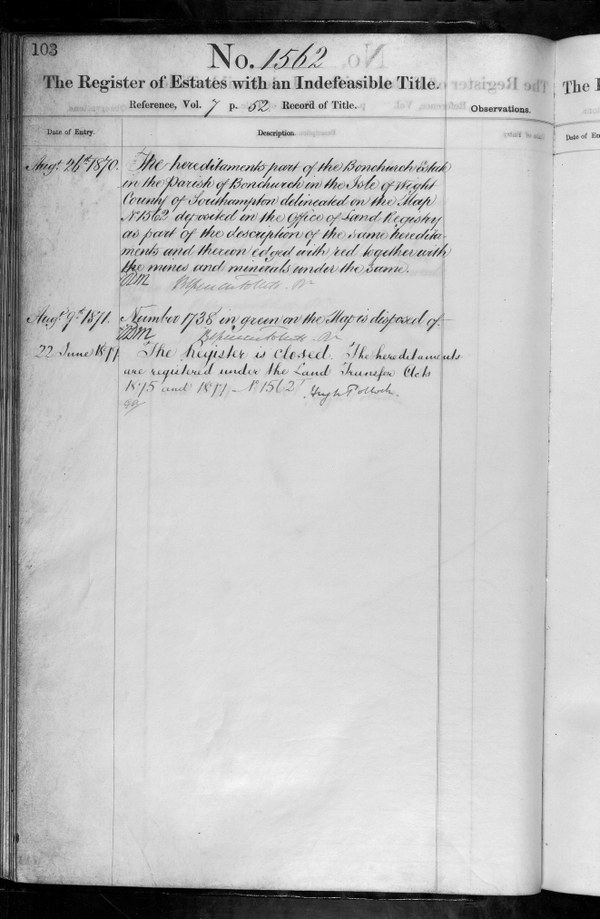 103
No. 1562
The Register of Estates with an Indefeasible Title.
Reference, Vol. 7 p. 52 Record of Title.
Observations.
Date of Entry.
Description.
Augt. 26th 1870. The hereditaments part of the Bonchurch Estate
in the Parish of Bonchurch in the Isle of Wight
County of Southampton delineated on the Map
No 1562 deposited in the Office of Land Registry
as part of the description of the same heredita-
ments and thereon edged with red together with
the mines and minerals under the same.
Augt. 9th 1871. Number 1738 in green on the Map is disposed of
22 June The Register is closed. The hereditaments
are registered under the Land Transfer Acts
1875 and 1897 - No 1562 Hugh Pollock.
The
Date of En